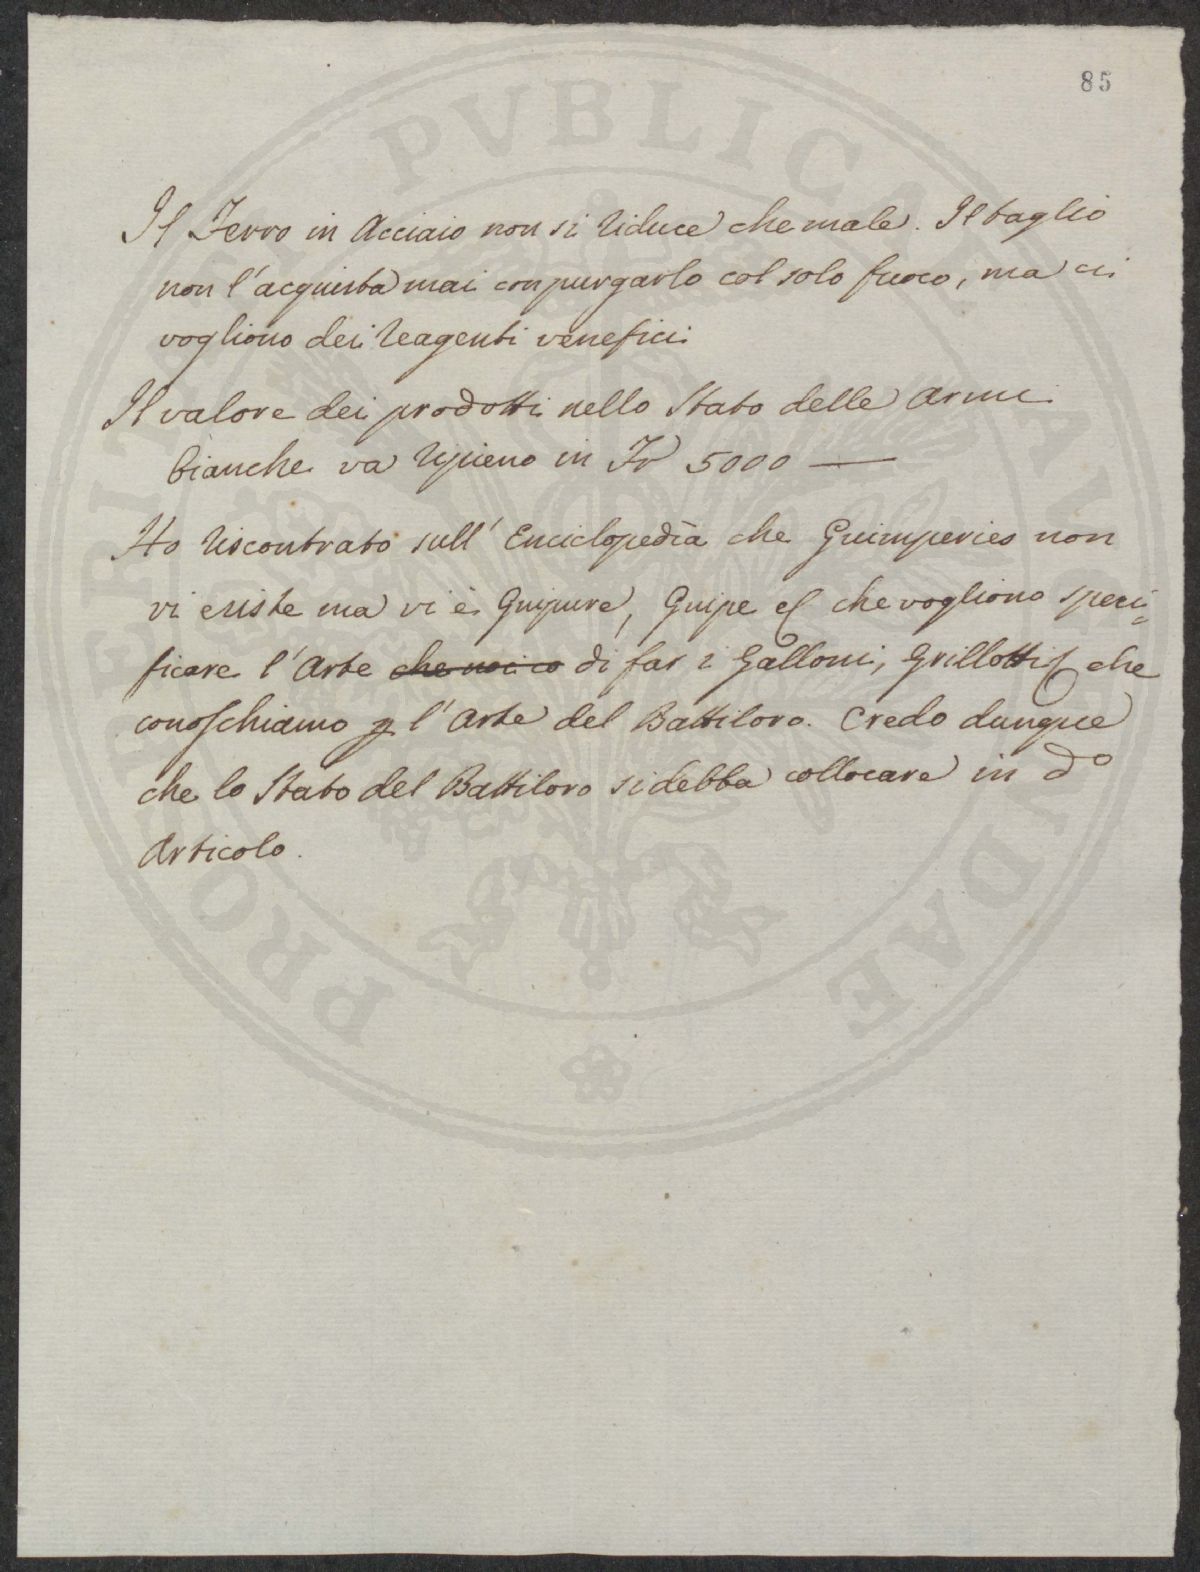 85
Il Ferro in Acciaio non si riduce che male. Il taglio
non l'acquista mai con purgarlo col solo fuoco, ma ci
vogliono dei reagenti venefici
Il valore dei prodotti nello Stato delle Armi
bianche va ripieno in Fr 5000 —
Ho riscontrato sull' Enciclopedia che Guimperies non
vi esiste ma vi è Guipure, Guipe & che vogliono speci=
ficare l'Arte che noi co di far i Galloni, Grillotti & che
conoschiamo p l'Arte del Battiloro. Credo dunque
che lo Stato del Battiloro si debba collocare in do
Articolo.
PROSPERITATI PVBLICAE AVGENDAE